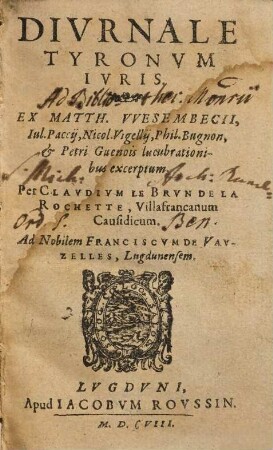 DIVRNALE
TYRONVM
IVRIS,
Ad Biblio
EX MATTH. VVESEMBECII,
Iul. Paccij, Nicol. Vigelly, Phil. Bugnon,
& Petri Guenois lucubrationi-
bus excerptum
Per CLAVDIVM LE BRVN DE LA
ROCHETTE, Villafrancanum
Ord. S. Ben.
Causidicum.
Ad Nobilem FRANCISCVM DE VAV-
ZELLES, Lugdunensem.
LVGDVNI,
Apud IACOBVM ROVSSIN.
M. D. CVIII.